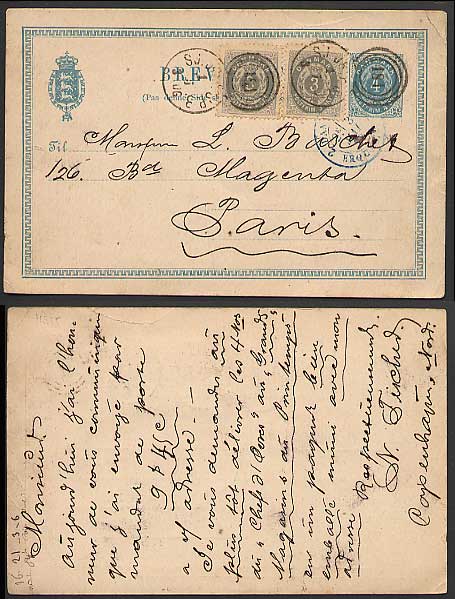 BREV
(Pas denne Side
4
3
Til
Monsieur L. Baschet
126. Bd Magenta
Paris.
Monsieur
Aujourd'hui j'ai l'hon-
neur de vous communiquer
que j'ai envoyé par
mandat de poste
a v/ adresse —
Je vous demander au
plus tôt délivrer les 4 Nos
du "Chefs d'Oeuvres" aux "Grands
Magasins du Printemps"
en un paquet bien
emballé muni avec mon
adresse.
Respectueusement
N. Fischer.
Copenhague, Nord.
16-21-3-6